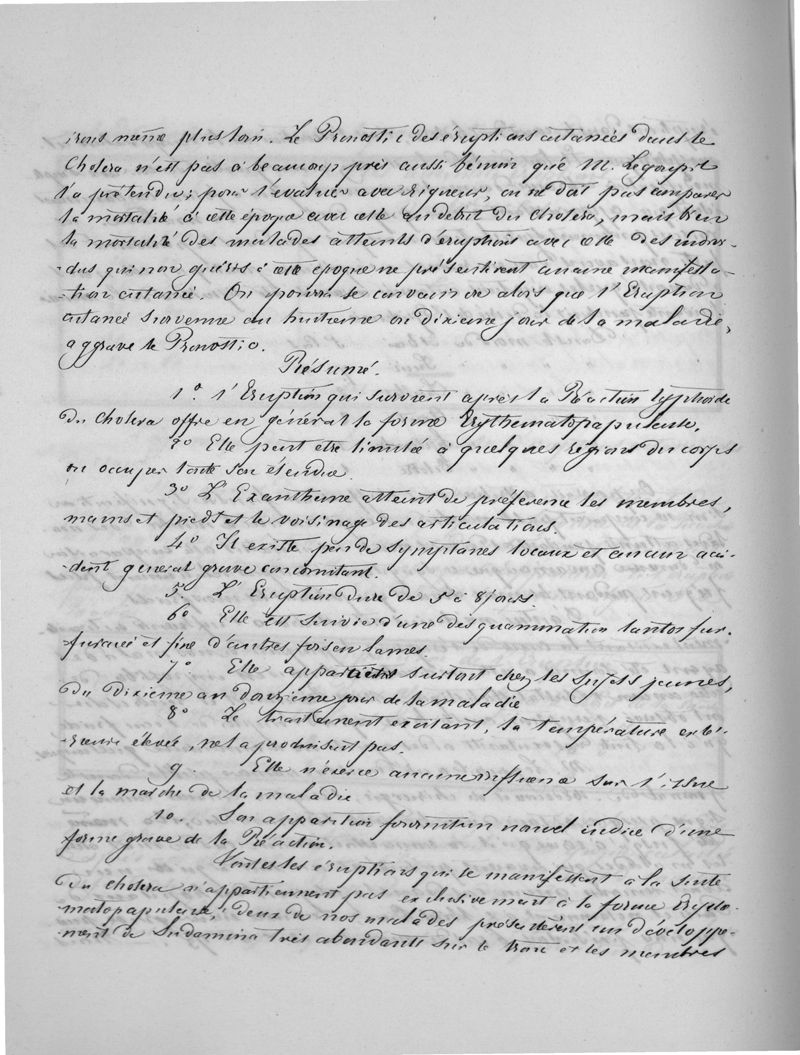 irons même plus loin. Le Pronostic des éruptions cutanées dans le
Choléra n'est pas à beaucoup près aussi bénin que M. Legoupil
l'a prétendu; pour l'évaluer avec rigueur, on ne doit pas comparer
la mortalité à cette époque avec celle au début du Choléra, mais bien
la mortalité des malades atteints d'éruptions avec celle des indivi-
-dus qui non guéris à cette époque ne présentèrent aucune manifesta-
-tion cutanée. On pourra se convaincre alors que l'Eruption
cutanée survenue au huitième ou dixième jour de la maladie,
aggrave le Pronostic.
Résumé.
1o. l'Eruption qui survient après la Réaction typhoïde
du choléra offre en général la forme Erythématopapuleuse.
2o Elle peut être limitée à quelques régions du corps
ou occuper toute son étendue.
3o L'Exanthème atteint de préférence les membres,
mains et pieds et le voisinage des articulations.
4o Il existe peu de symptômes locaux et aucun acci-
-dent général grave concomitant.
5o L'Eruption dure de 5 à 8 jours.
6o Elle est suivie d'une desquammation tantôt fur-
furacée et fine d'autres fois en lames
7o. Elle appartient surtout chez les sujets jeunes,
du dixième au douzième jour de la maladie
8o Le traitement excitant, la température exté-
rieure élevée, ne la produisent pas.
9. Elle n'exerce aucune influence sur l'issue
et la marche de la maladie
10. Son apparition fournit un nouvel indice d'une
forme grave de la Réaction.
Toutes les éruptions qui se manifestent à la suite
du choléra n'appartiennent pas exclusivement à la forme Erythé-
-matopapulaire, deux de nos malades présentèrent un développe-
-ment de Sudamina très abondants sur le tronc et les membres